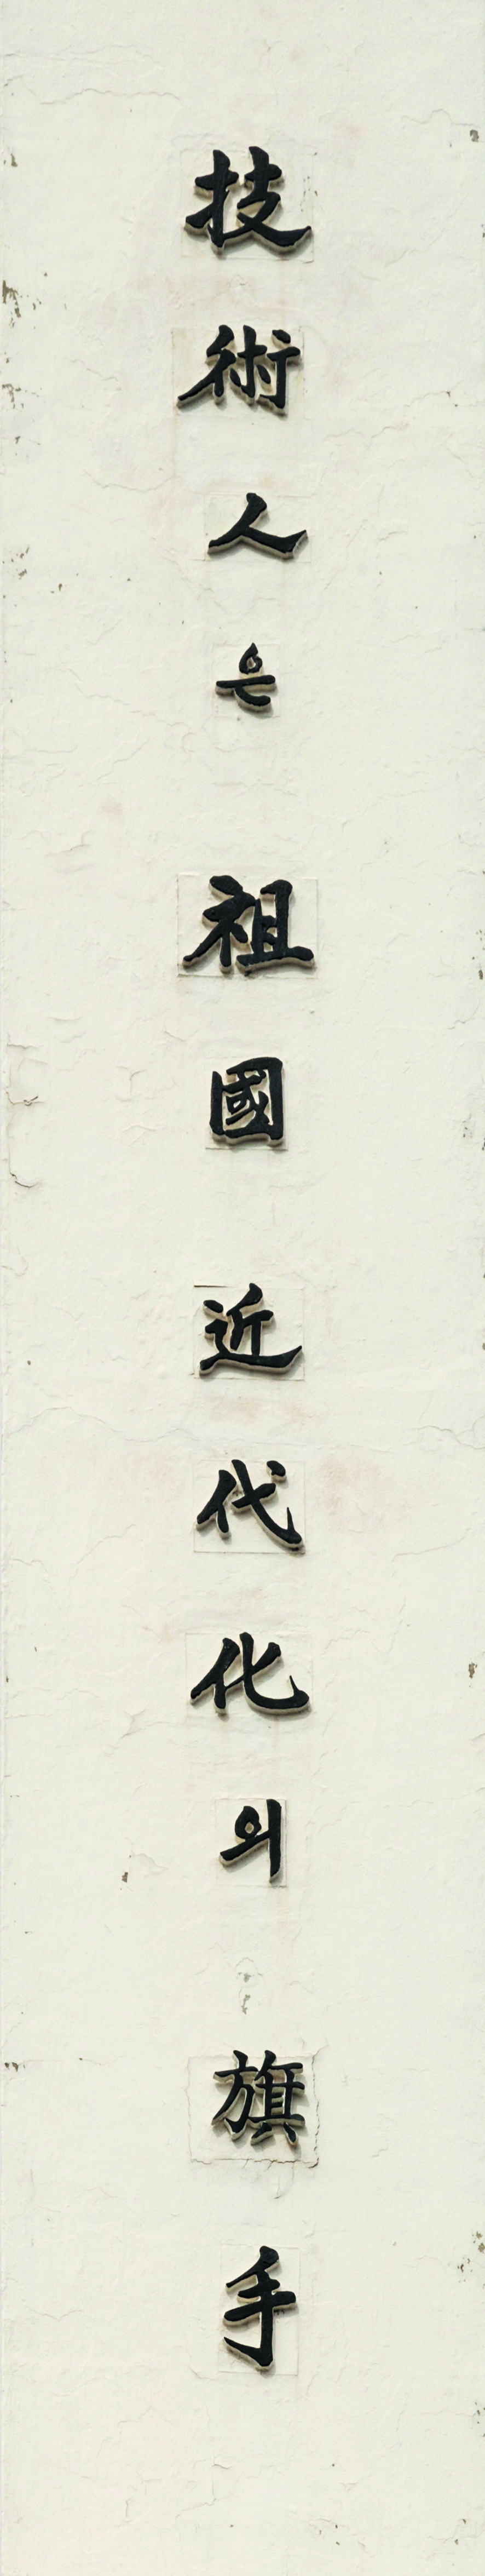 技術人은 祖國 近代化의 旗手